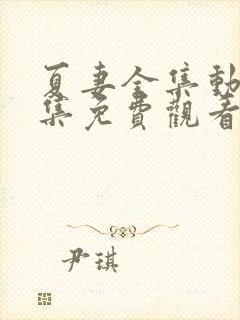 夏妻全集動
集免費觀看
尹琪